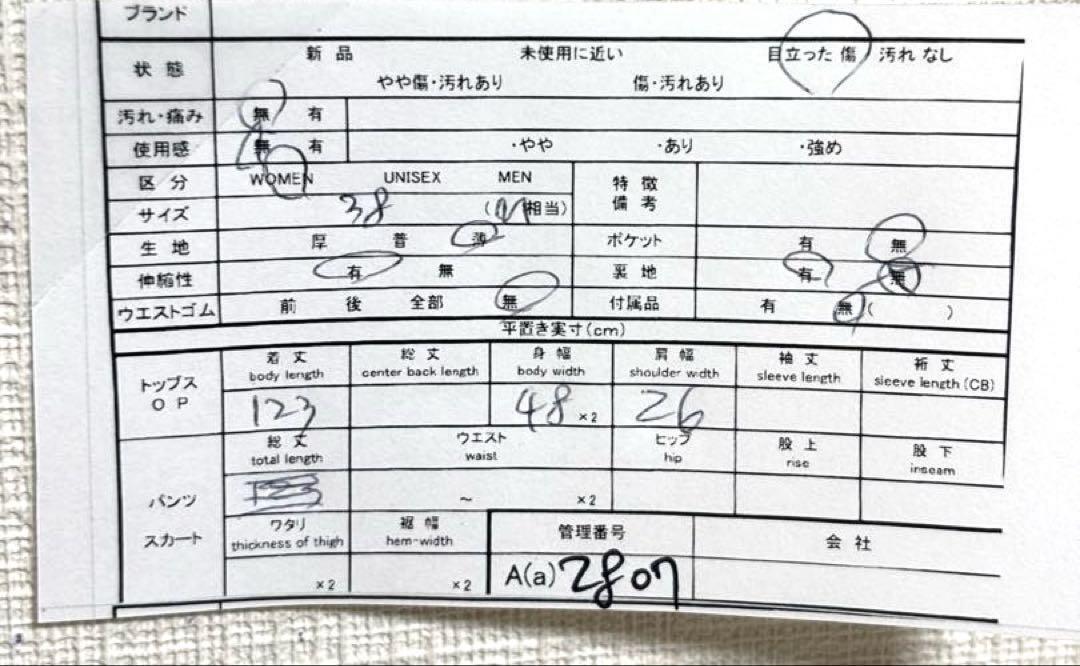 ブランド
状態 新品 未使用に近い 目立った 傷 汚れ なし
やや傷・汚れあり 傷・汚れあり
汚れ・痛み 無 有
使用感 無 有 ・やや ・あり ・強め
区分 WOMEN UNISEX MEN 特徴
備考
サイズ 38 (M相当)
生地 厚 普 薄 ポケット 有 無
伸縮性 有 無 裏地 有 無
ウエストゴム 前 後 全部 無 付属品 有 無( )
平置き実寸(cm)
トップス
OP
着丈 総丈 身幅 肩幅 袖丈 裄丈
body length center back length body width shoulder width sleeve length sleeve length (CB)
123 48 ×2 26
パンツ
スカート
総丈 ウエスト ヒップ 股上 股下
total length waist hip rise inseam
123 ~ ×2
ワタリ 裾幅 管理番号 会社
thickness of thigh hem-width
×2 ×2 A(a) 2807